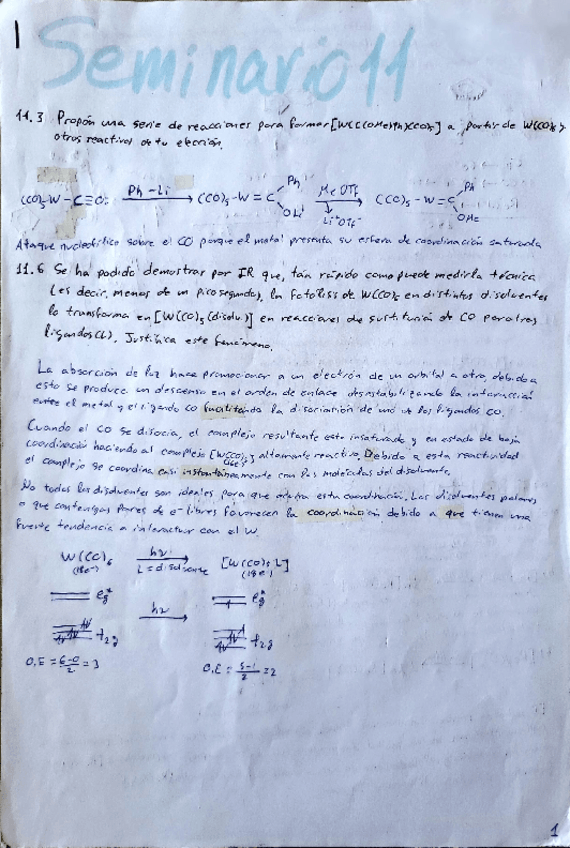 1
Seminario 11
11.3 Propón una serie de reacciones para formar [W(C(OMe)Ph)(CO)5] a partir de W(CO)6 y
otros reactivos de tu elección.
(CO)5-W-C≡O: Ph-Li (CO)5-W=C Ph OLi MeOTf Li+OTf- (CO)5-W=C Ph OMe
Ataque nucleofílico sobre el CO porque el metal presenta su esfera de coordinación saturada
11.6 Se ha podido demostrar por IR que, tan rápido como puede medirla técnica
(es decir, menos de un picosegundo), la fotólisis de W(CO)6 en distintos disolventes
lo transforma en [W(CO)5(disolv)] en reacciones de sustitución de CO por otros
ligandos (L). Justifica este fenómeno.
La absorción de luz hace promocionar a un electrón de un orbital a otro, debido a
esto se produce un descenso en el orden de enlace desestabilizando la interacción
entre el metal y el ligando CO facilitando la disociación de uno de los ligandos CO.
Cuando el CO se disocia, el complejo resultante esta insaturado y en estado de baja
coordinación haciendo al complejo [W(CO)5] altamente reactivo. Debido a esta reactividad
(16e-)
el complejo se coordina casi instantáneamente con las moléculas del disolvente.
No todos los disolventes son ideales para que ocurra esta coordinación. Los disolventes polares
o que contengan pares de e- libres favorecen la coordinación debido a que tienen una
fuerte tendencia a interactuar con el W.
W(CO)6 hν [W(CO)5 L]
(18e-) L = disolvente (18e)
eg* hν eg*
t2g t2g
O.E = 6-0/2 = 3 O.E = 5-1/2 = 2
1